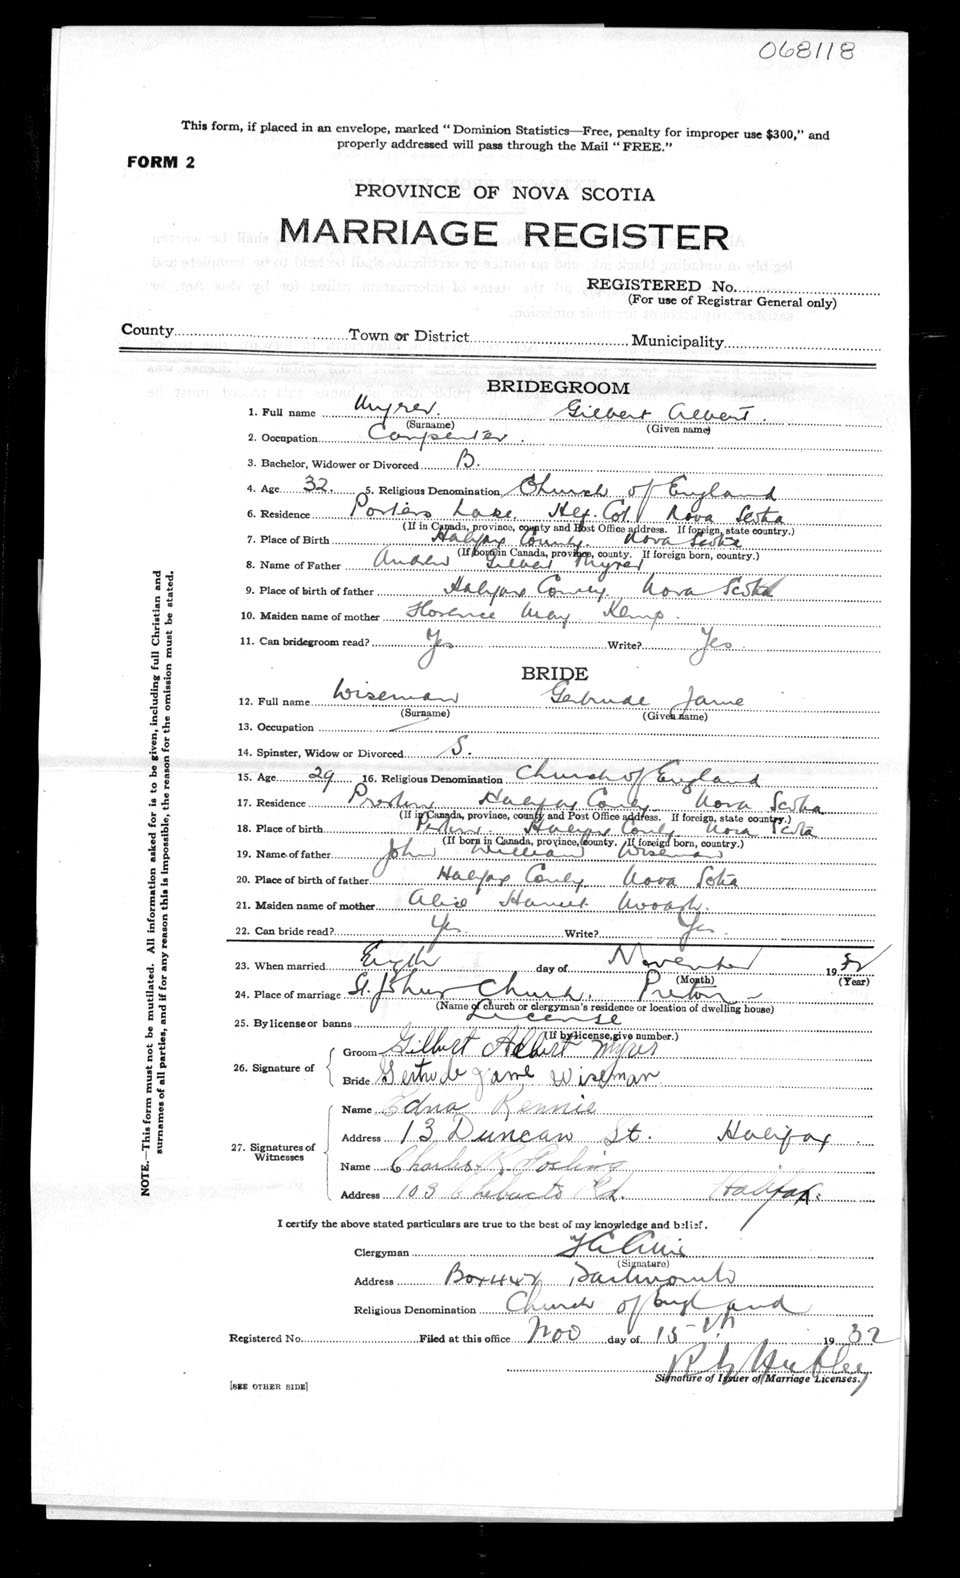 068118
This form, if placed in an envelope, marked "Dominion Statistics—Free, penalty for improper use $300," and
properly addressed will pass through the Mail "FREE."
FORM 2
PROVINCE OF NOVA SCOTIA
MARRIAGE REGISTER
REGISTERED No.
(For use of Registrar General only)
County Town or District Municipality
BRIDEGROOM
1. Full name Myrer. Gilbert Albert.
(Surname) (Given name)
2. Occupation Carpenter.
3. Bachelor, Widower or Divorced B.
4. Age 32. 5. Religious Denomination Church of England
6. Residence Porters Lake, Hfx. Co. Nova Scotia
(If in Canada, province, county and Post Office address. If foreign, state country.)
7. Place of Birth Halifax County Nova Scotia
(If born in Canada, province, county. If foreign born, country.)
8. Name of Father Andrew Gilbert Myrer
9. Place of birth of father Halifax County Nova Scotia
10. Maiden name of mother Florence May Kemp.
11. Can bridegroom read? Yes Write? Yes
BRIDE
12. Full name Wiseman Gertrude Jame
(Surname) (Given name)
13. Occupation —
14. Spinster, Widow or Divorced S.
15. Age 29 16. Religious Denomination Church of England
17. Residence Preston Halifax County Nova Scotia
(If in Canada, province, county and Post Office address. If foreign, state country.)
18. Place of birth Halifax County Nova Scotia
(If born in Canada, province, county. If foreign born, country.)
19. Name of father John William Wiseman
20. Place of birth of father Halifax County Nova Scotia
21. Maiden name of mother Alice Harriet
22. Can bride read? Yes. Write? Yes
23. When married Eighth day of November 1932
(Month) (Year)
24. Place of marriage St. Johns Church, Preston -
(Name of church or clergyman's residence or location of dwelling house)
25. By license or banns License
(If by license, give number.)
26. Signature of Groom Gilbert Albert Myrer
Bride Gertrude Jame Wiseman
27. Signatures of Witnesses Name Edna Rennie
Address 13 Duncan St. Halifax
Name Charles R. Gosling
Address 103 Chebucto Rd. Halifax
I certify the above stated particulars are true to the best of my knowledge and belief.
Clergyman
(Signature)
Address Box 447 Dartmouth
Religious Denomination Church of England
Registered No. Filed at this office Nov day of 15th 1932
Signature of Issuer of Marriage Licenses.
[SEE OTHER SIDE]
NOTE.—This form must not be mutilated. All information asked for is to be given, including full Christian and
surnames of all parties, and if for any reason this is impossible, the reason for the omission must be stated.